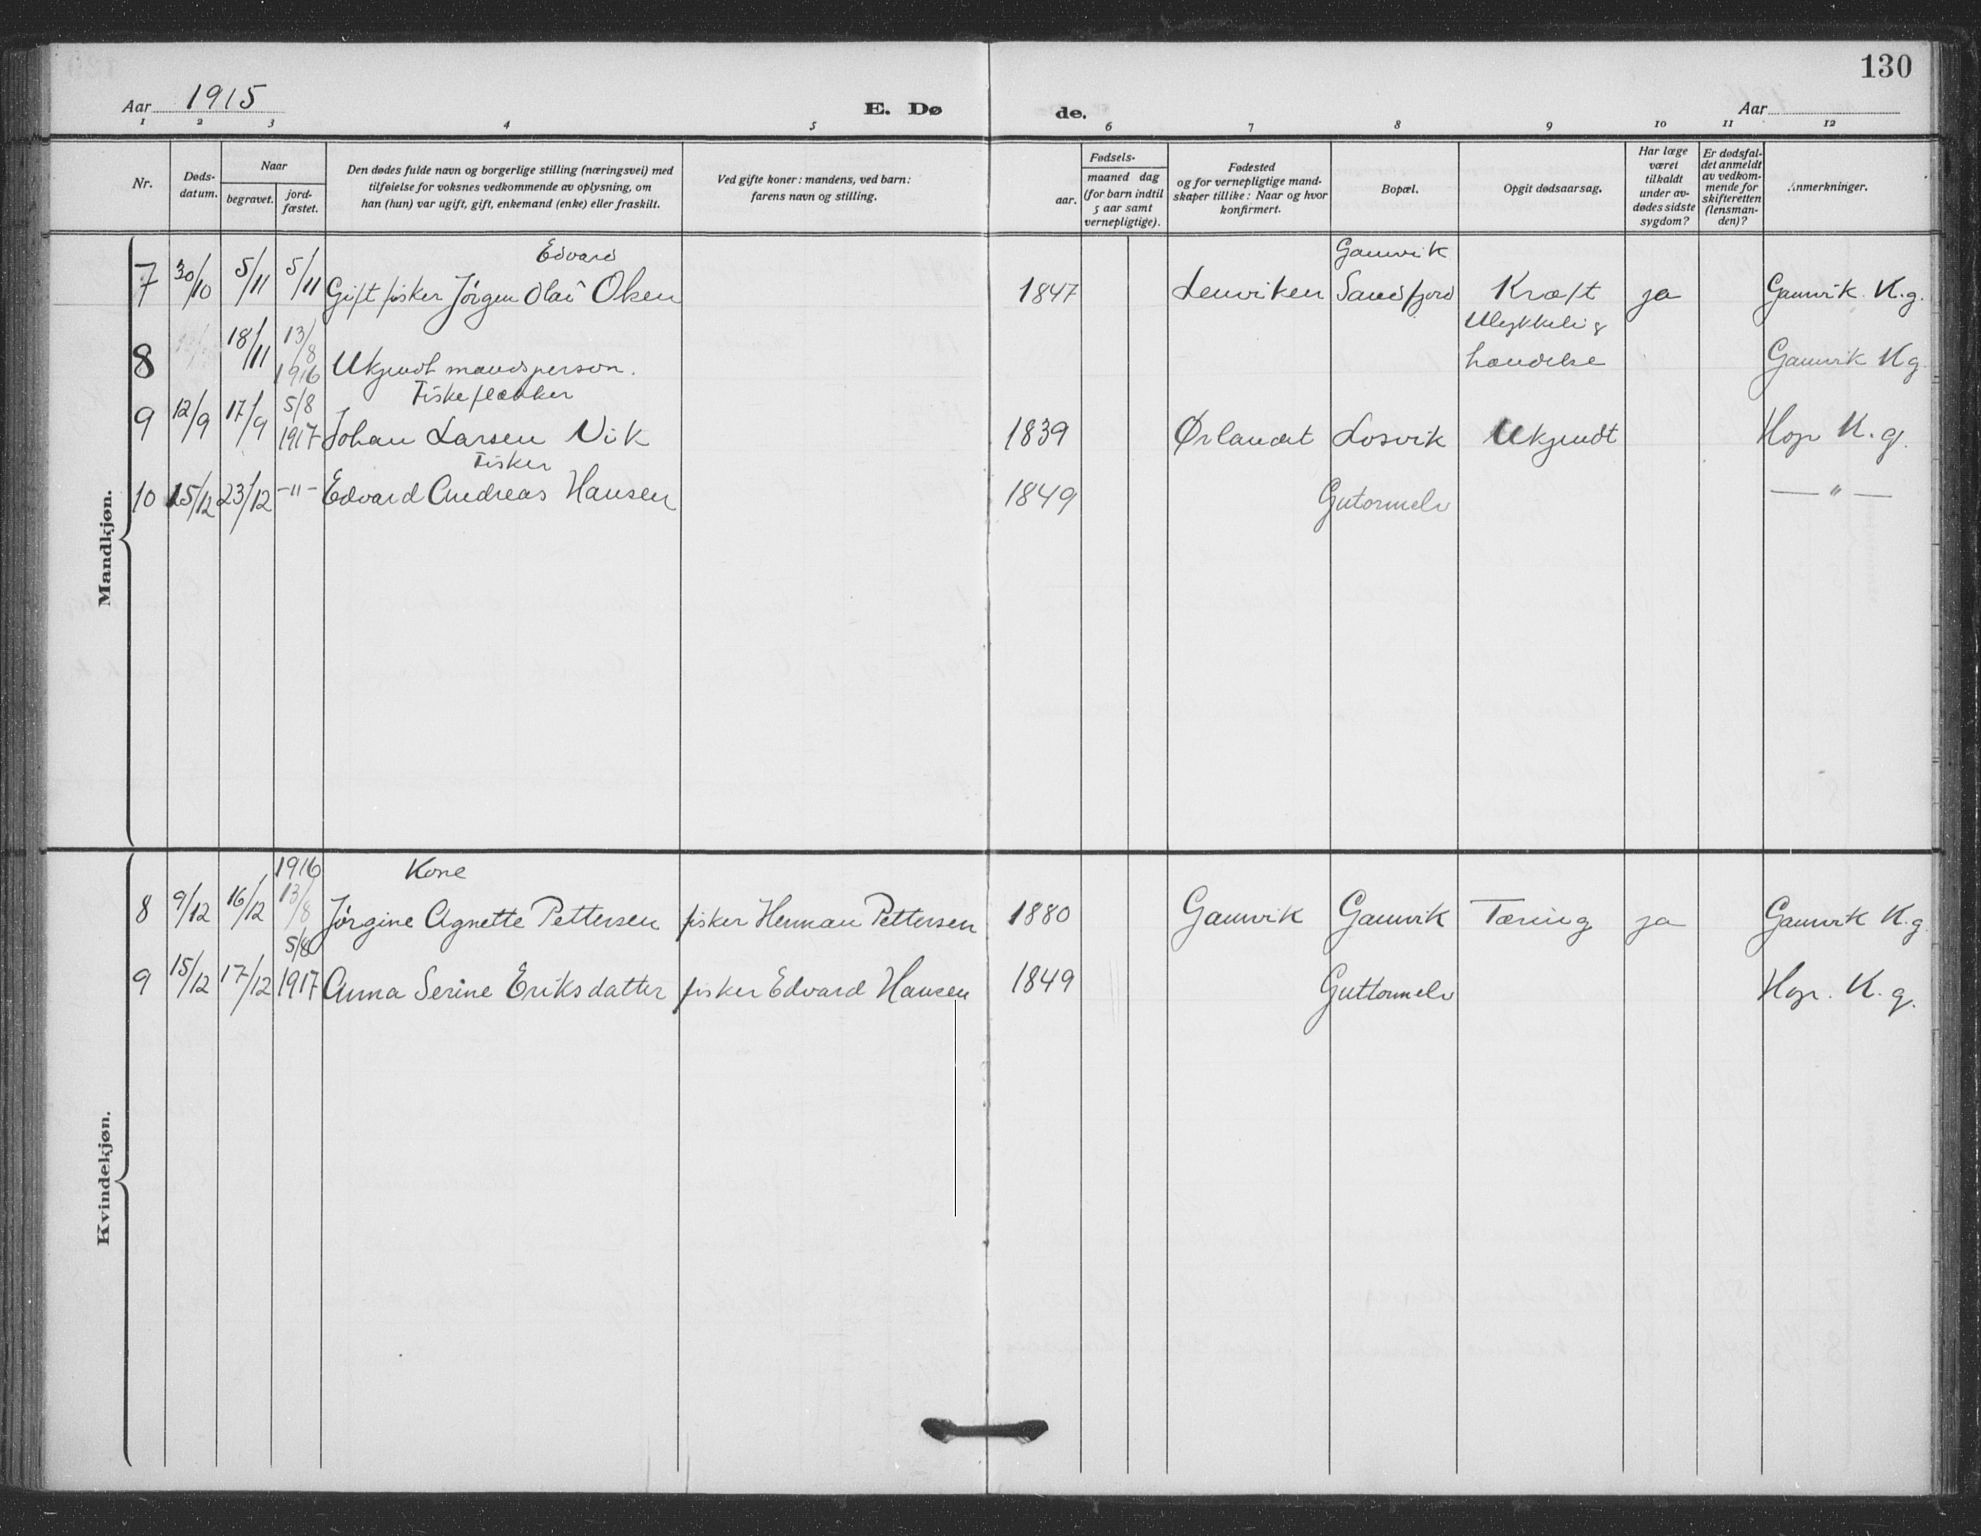 130
Aar 1915
E. Dø
de.
Aar
1 2 3 4 5 6 7 8 9 10 11 12
Nr.
Døds-
datum.
Naar
begravet.
jord-
fæstet.
Den dødes fulde navn og borgerlige stilling (næringsvei) med
tilføielse for voksnes vedkommende av oplysning, om
han (hun) var ugift, gift, enkemand (enke) eller fraskilt.
Ved gifte koner: mandens, ved barn:
farens navn og stilling.
Fødsels-
aar.
maaned dag
(for barn indtil
5 aar samt
vernepligtige).
Fødested
og for vernepligtige mand-
skaper tillike: Naar og hvor
konfirmert.
Bopæl.
Opgit dødsaarsag.
Har læge
været
tilkaldt
under av-
dødes sidste
sygdom?
Er dødsfal-
det anmeldt
av vedkom-
mende for
skifteretten
(lensman-
den)?
Anmerkninger.
Mandkjøn.
Edvard Gamvik
7 30/10 5/11 5/11 Gift fisker Jørgen Olai Olsen 1847 Lenviken Sandfjord Kræft ja Gamvik K.g.
Ulykkelig
8 18/11 13/8 1916 Ukjendt mandsperson. hændelse Gamvik K g
Fiskeflækker
9 12/9 17/9 5/8 1917 Johan Larsen Vik 1839 Ørlandet Losvik Ukjendt Hop K. g.
Fisker
10 15/12 23/12 -"- Edvard Andreas Hansen 1849 Gutormelv — " —
Kvindekjøn.
1916 Kone
8 9/12 16/12 13/8 Jørgine Agnette Pettersen fisker Herman Pettersen 1880 Gamvik Gamvik Tæring ja Gamvik K.g
5/8
9 15/12 17/12 1917 Anna Serine Eriksdatter fisker Edvard Hansen 1849 Guttormelv Hop. K. g.